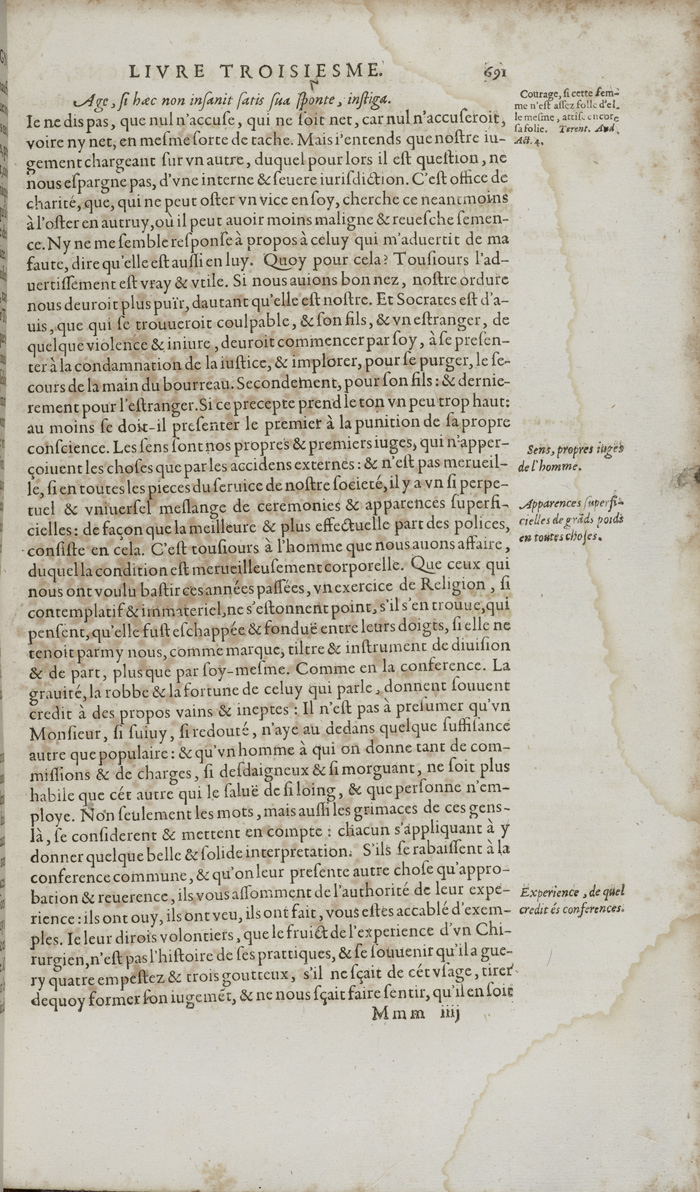 LIVRE TROISIESME. 691
Age, si hæc non insanit satis sua sponte, instiga.
Ie ne dis pas, que nul n'accuse, qui ne soit net, car nul n'accuseroit,
voire ny net, en mesme sorte de tache. Mais i'entends que nostre iu-
gement chargeant sur vn autre, duquel pour lors il est question, ne
nous espargne pas, d'vne interne & seuere iurisdiction. C'est office de
charité, que, qui ne peut oster vn vice en soy, cherche ce neantmoins
à l'oster en autruy, où il peut auoir moins maligne & reuesche semen-
ce. Ny ne me semble response à propos à celuy qui m'aduertit de ma
faute, dire qu'elle est aussi en luy. Quoy pour cela? Tousiours l'ad-
uertissement est vray & vtile. Si nous auions bon nez, nostre ordure
nous deuroit plus puïr, dautant qu'elle est nostre. Et Socrates est d'a-
uis, que qui se trouueroit coulpable, & son fils, & vn estranger, de
quelque violence & iniure, deuroit commencer par soy, à se presen-
ter à la condamnation de la iustice, & implorer, pour se purger, le se-
cours de la main du bourreau. Secondement, pour son fils: & dernie-
rement pour l'estranger. Si ce precepte prend le ton vn peu trop haut:
au moins se doit-il presenter le premier à la punition de sa propre
conscience. Les sens sont nos propres & premiers iuges, qui n'apper-
çoiuent les choses que par les accidens externes: & n'est pas merueil-
le, si en toutes les pieces du seruice de nostre societé, il y a vn si perpe-
tuel & vniuersel meslange de ceremonies & apparences superfi-
cielles: de façon que la meilleure & plus effectuelle part des polices,
consiste en cela. C'est tousiours à l'homme que nous auons affaire,
duquel la condition est merueilleusement corporelle. Que ceux qui
nous ont voulu bastir ces années passées, vn exercice de Religion, si
contemplatif & immateriel, ne s'estonnent point, s'il s'en trouue, qui
pensent, qu'elle fust eschappée & fonduë entre leurs doigts, si elle ne
tenoit parmy nous, comme marque, tiltre & instrument de diuision
& de part, plus que par soy-mesme. Comme en la conference. La
grauité, la robbe & la fortune de celuy qui parle, donnent souuent
credit à des propos vains & ineptes: Il n'est pas à presumer qu'vn
Monsieur, si suiuy, si redouté, n'aye au dedans quelque suffisance
autre que populaire: & qu'vn homme à qui on donne tant de com-
missions & de charges, si desdaigneux & si morguant, ne soit plus
habile que cét autre qui le saluë de si loing, & que personne n'em-
ploye. Non seulement les mots, mais aussi les grimaces de ces gens-
là, se considerent & mettent en compte: chacun s'appliquant à y
donner quelque belle & solide interpretation. S'ils se rabaissent à la
conference commune, & qu'on leur presente autre chose qu'appro-
bation & reuerence, ils vous assomment de l'authorité de leur expe-
rience: ils ont ouy, ils ont veu, ils ont fait, vous estes accablé d'exem-
ples. Ie leur dirois volontiers, que le fruict de l'experience d'vn Chi-
rurgien, n'est pas l'histoire de ses prattiques, & se souuenir qu'il a gue-
ry quatre empestez & trois goutteux, s'il ne sçait de cét vsage, tirer
dequoy former son iugemét, & ne nous sçait faire sentir, qu'il en soit
Mmm iiij
Courage, si cette fem-
me n'est assez folle d'el-
le mesme, attise encore
sa folie. Terent. And.
Act. 4.
Sens, propres iuges
de l'homme.
Apparences superfi-
cielles de grāds poids
en toutes choses.
Experience, de quel
credit és conferences.